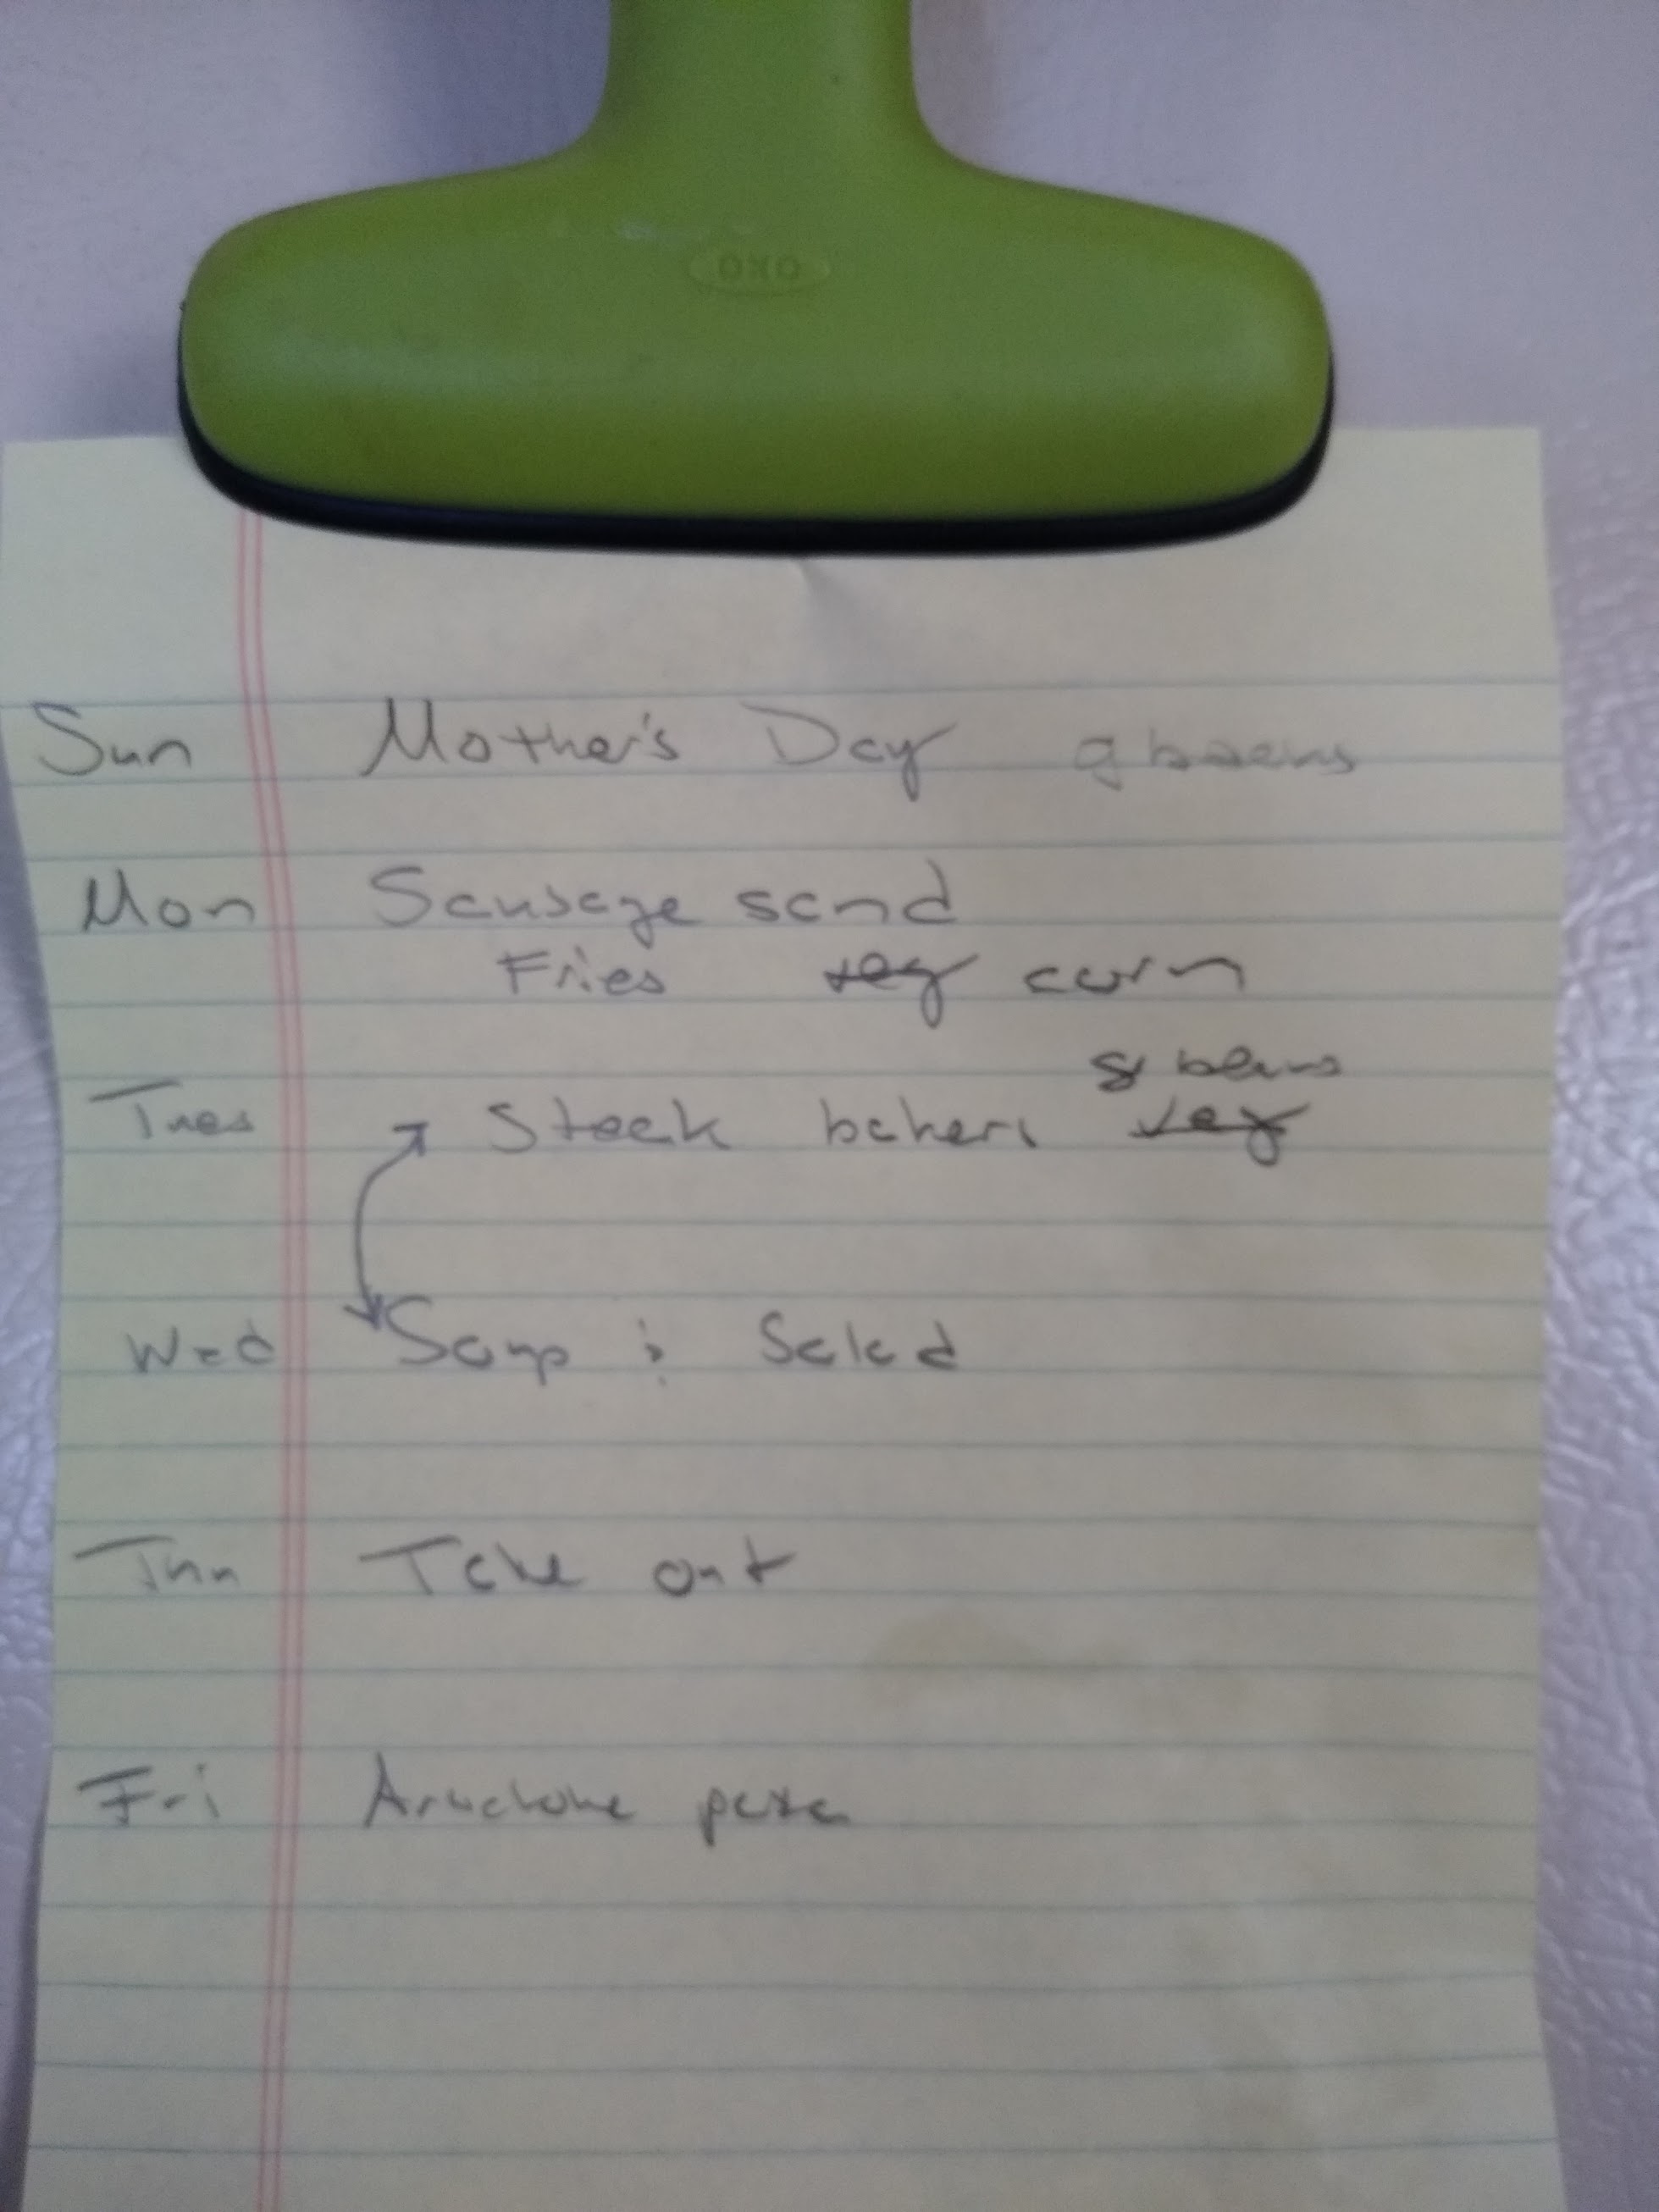 OXO
Sun Mother's Day g beans
Mon Sausage sand
Fries veg corn
g beans
Tues Steak bakers veg
Wed Soup & Salad
Thu Take out
Fri Artichoke pasta